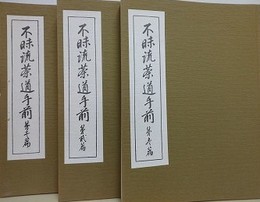 不昧流茶道手前 第一篇
不昧流茶道手前 第貮篇
不昧流茶道手前 第参篇